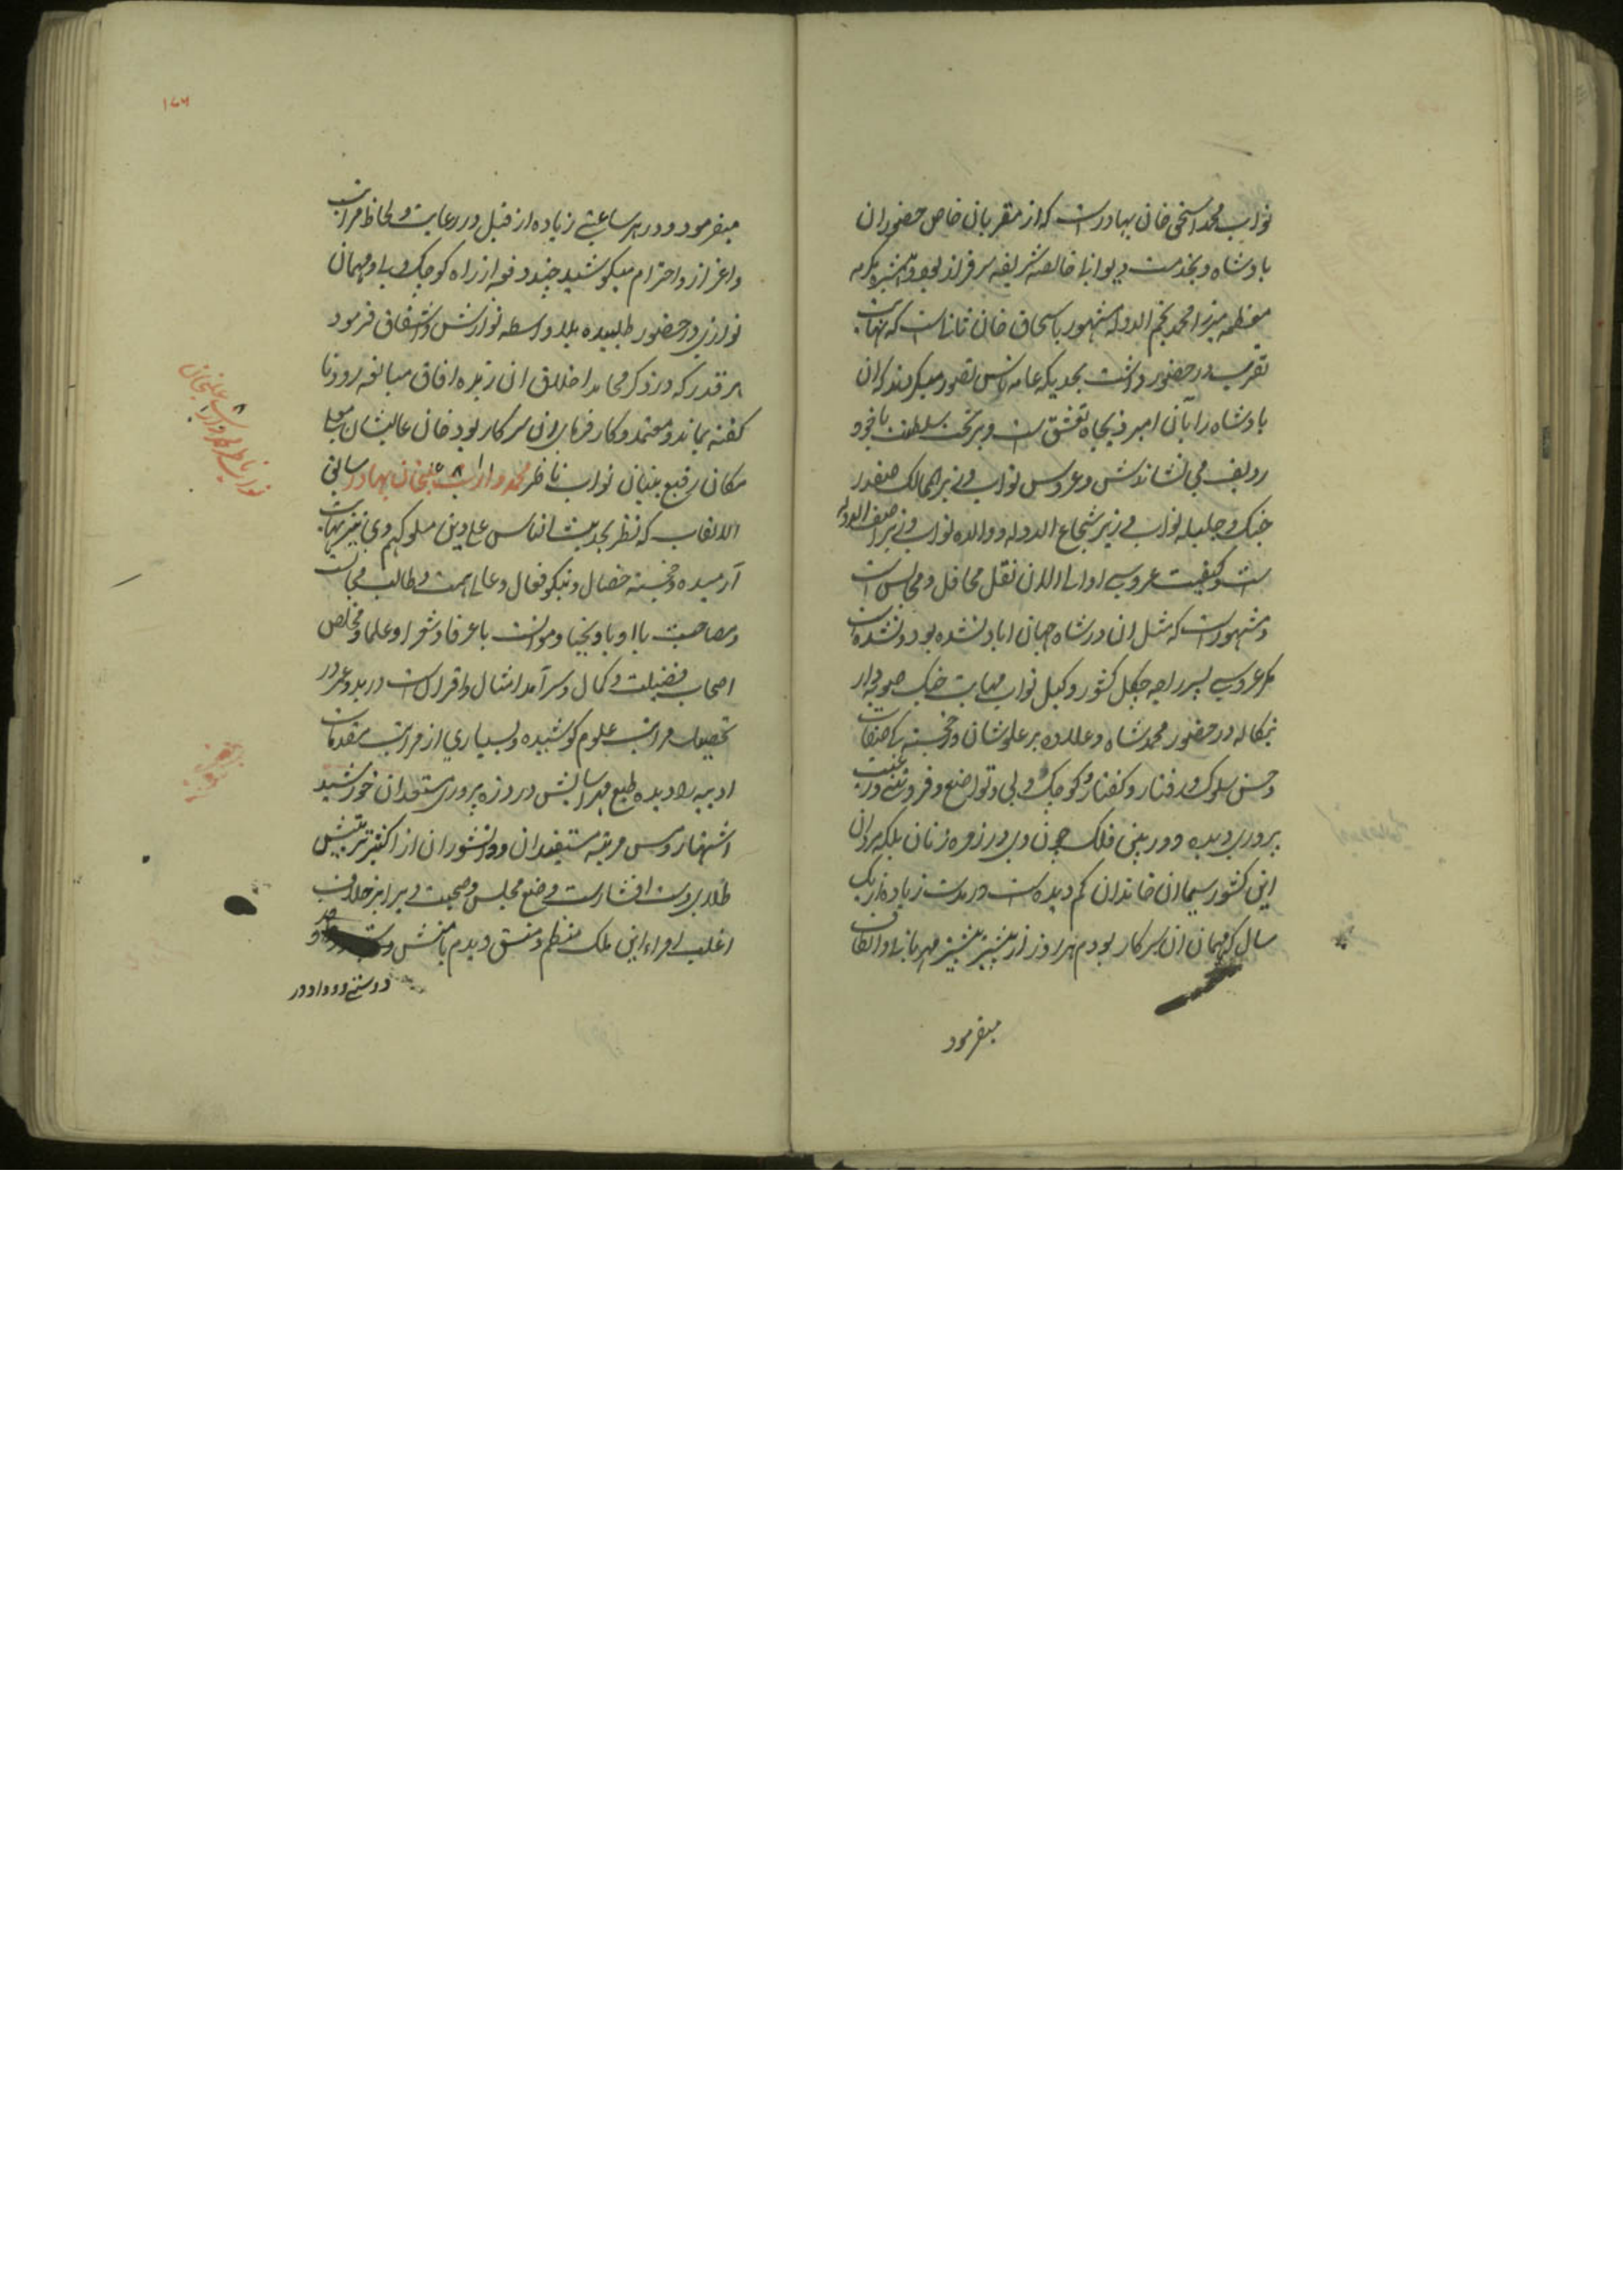 نواب محمد اسحق خان بهادرست که از مقربان خاص حضور ان
بادشاه و بخدمت دیوانی خالصه شریفه سرفراز بود و همشیره مکرمه
معظمه میرزا محمد نجم الدوله مشهور باسحاق خان ثانیاست که نهایت
تقرب در حضور داشت بحدیکه عامه ناس تصور میکردند که ان
بادشاه را بآن امیر ذیجاه تعشق ست و بر تخت سلطنت با خود
ردیف می نشاندش و عروس نواب وزیر الممالک صفدر
جنک و جلیله نواب وزیر شجاع الدوله و والده نواب وزیر اصف الدوله
ست و کیفیت عروسی او الی الان نقل محافل و مجالس است
و مشهورست که مثل ان در شاه جهان اباد نشده بود و نشده است
مکر عروسی پسر راجه جکل کشور وکیل نواب مهابت جنک صوبه دار
بنکاله در حضور محمد شاه و علاوه بر علو شان و خجسته کی صفات
و حسن سلوک و رفتار و کفتار و کوچک دلی و تواضع و فروتنی و رعیت
پروری دیده دور بین فلک چون وی در زمره زنان بلکه مردان
این کشور سیما ان خاندان کم دیده ست در مدت زیاده از یک
سال که مهمان ان سرکار بودم هر روز از پیشتر بیشتر مهربانی و الطاف
میفرمود
۱۷۶
میفرمود و در هر ساعتی زیاده از قبل در رعایت و لحاظ مراتب
و اعزاز و احترام میکوشید چند دفعه از راه کوچک دلی و مهمان
نوازی در حضور طلبیده بلا واسطه نوازش و اشفاق فرمود
هر قدر که در ذکر محامد اخلاق ان زبده افاق مبالغه رود نا
کفته بماند و معتمد و کارفرمای ان سرکار بود خان عالیشان معلی
مکان رفیع بنیان نواب ناظر محمد داراب علیخان بهادر سامی
الالقاب که نظر بحدیث الناس علی دین ملوکهم وی نیز نهایت
آرمیده و خجسته خصال و نیکو فعال و عالی همت و طالب مجالست
و مصاحبت با ادبا و نجبا و موانست با عرفا و شعرا و علما و مخلص
اصحاب فضیلت و کمال و سر آمد امثال و اقران ست در بدو عمر در
تحصیل مراتب علوم کوشیده و بسیاری از مراتب مقدمات
ادبیه را دیده طبع مهر اسایش در ذره پروری مستعدان خورشید
اشتهار و مس مرتبه مستفیدان و دانشوران از اکسیر تربیتش
طلای دست افشارست وضع مجلس و صحبت وی را بر خلاف
اغلب امراء این ملک منتظم و متسق دیدم با منش
دوستی و وداد در
نواب ناظر داراب علیخان